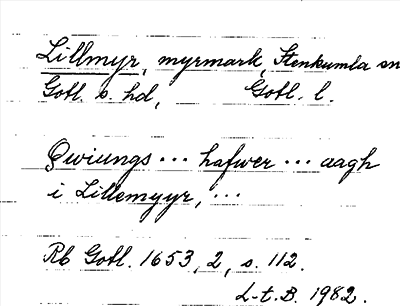 Lillmyr, myrmark, Stenkumla sn
Gotl. s. hd, Gotl. l.
Qwiungs ... hafwer ... aagh
i Lillemyyr, ...
Rb Gotl. 1653, 2, s. 112.
L-t. B. 1982.